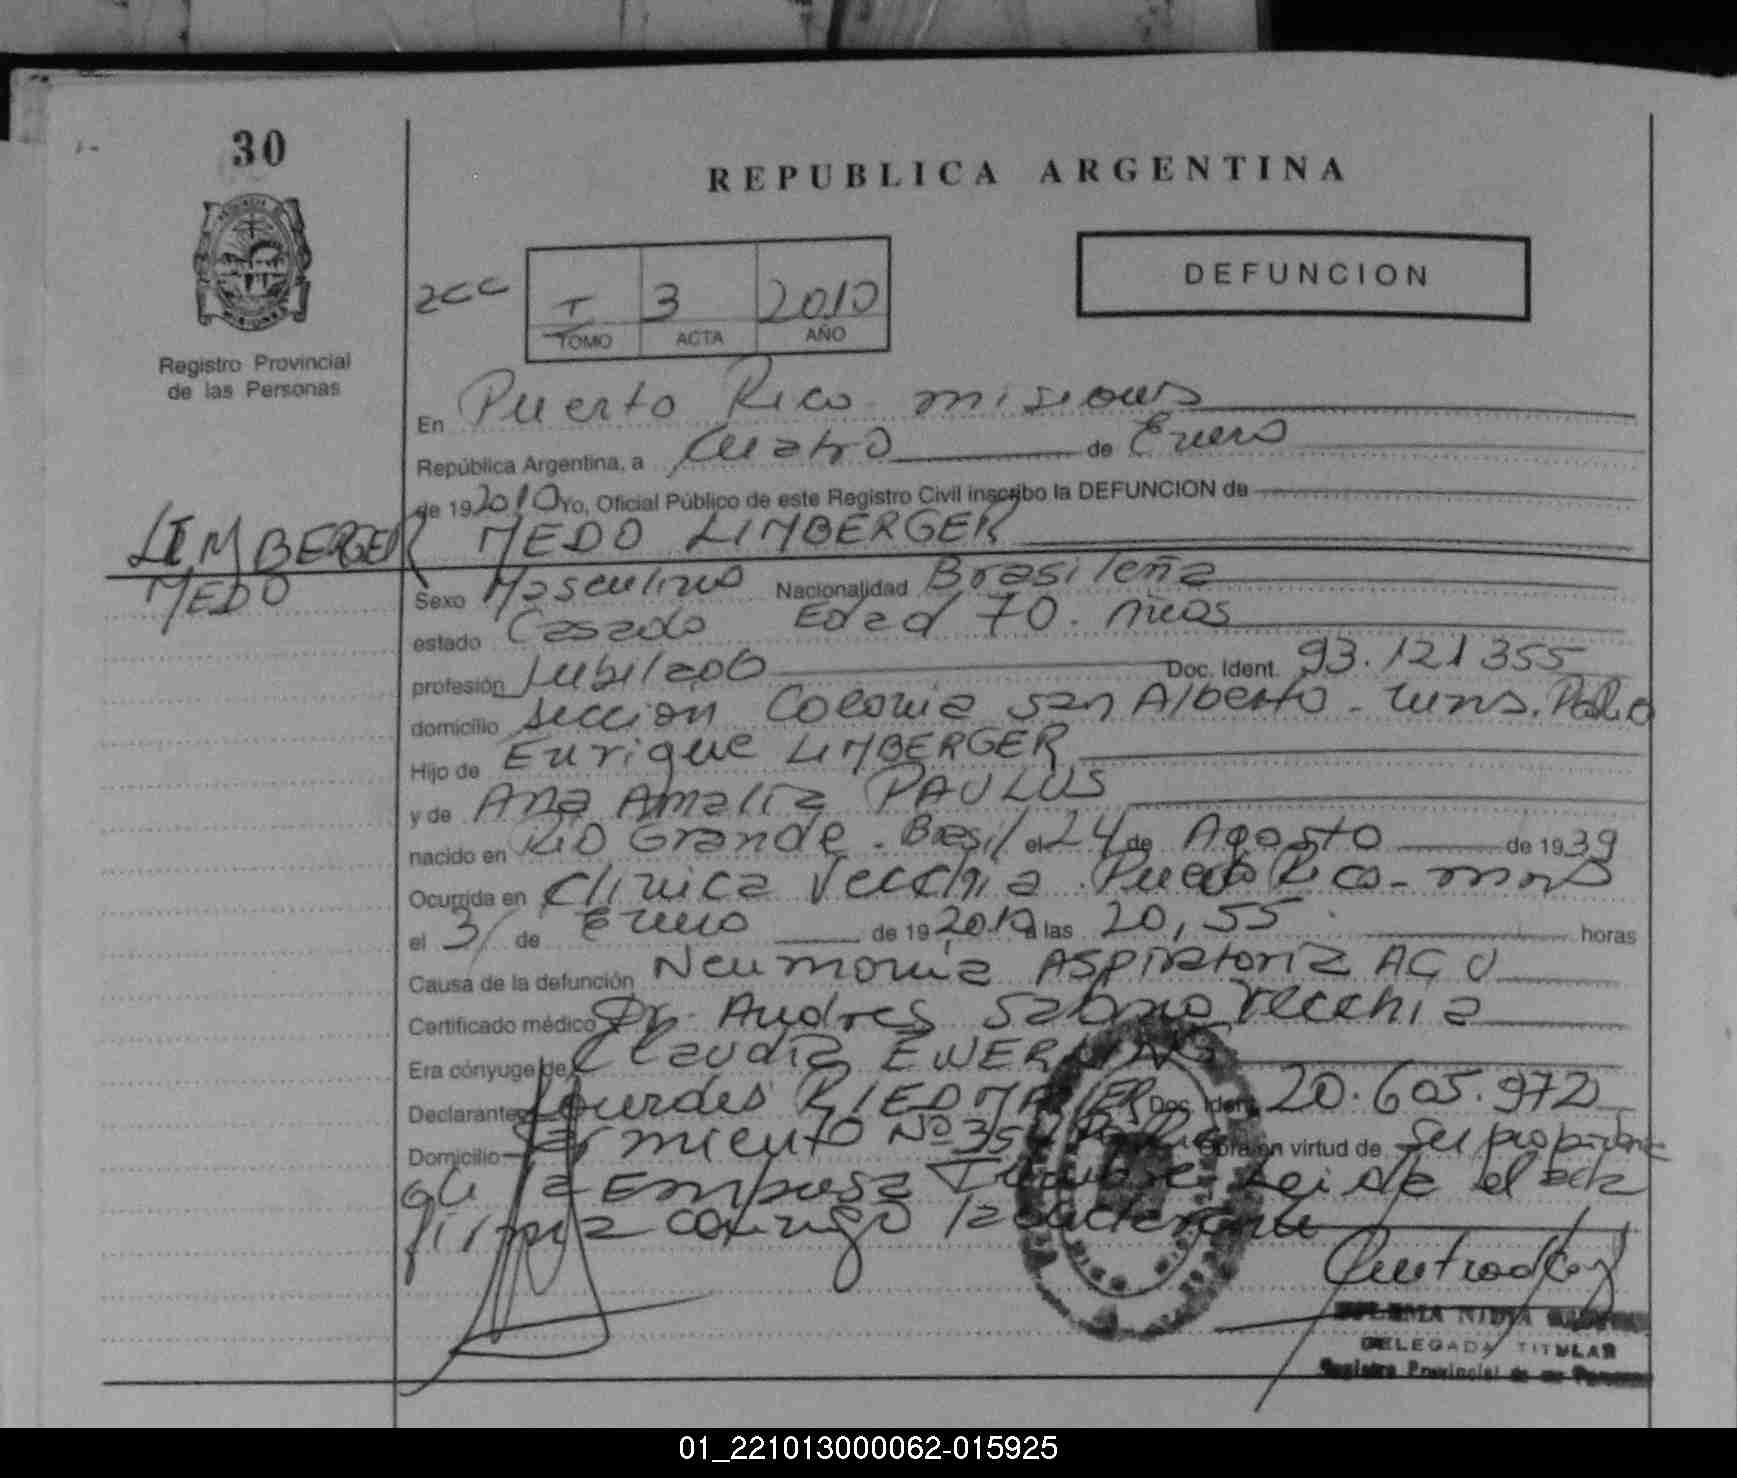 30
REPUBLICA ARGENTINA
DEFUNCION
Registro Provincial
de las Personas
2cc
I 3 2010
TOMO ACTA AÑO
En Puerto Rico misiones
República Argentina, a Cuatro de Enero
de 19 2010 Yo, Oficial Público de este Registro Civil inscribo la DEFUNCION de
LIMBERGER
MEDO
MEDO LIMBERGER
Sexo Masculino Nacionalidad Brasileña
estado Casado Edad 70. Años
profesión Jubilado Doc. Ident. 93.121355
domicilio sección Colonia san Alberto
Hijo de Enrique LIMBERGER
y de Ana Amalia PAULUS
nacido en Rio Grande. Brasil el 24 de Agosto de 1939
Ocurrida en Clinica Vecchia. Puerto Rico-
el 3/ de Enero de 19 2010 a las 20,55 horas
Causa de la defunción Neumonia ASpiratoria
Certificado médico Dr. Andres Vecchia
Era cónyuge de Claudia
Declarante Lourdes RIEDMAIER Doc. Iden. 20.605.972
Domicilio Sarmiento Nº obra en virtud de Ser
de la Empresa Leida el acta
firma conmigo la declarante
DELEGADA TITULAR
Registro Provincial de
01_221013000062-015925